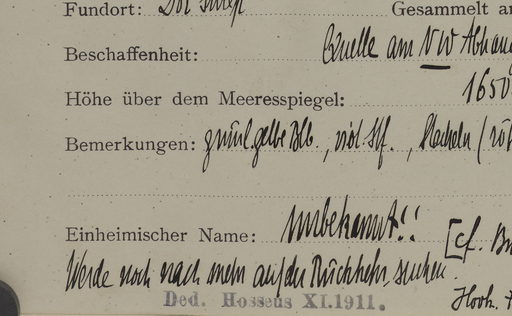 Fundort: Doi Sutep Gesammelt
Beschaffenheit: Quelle am NW Abhan
Höhe über dem Meeresspiegel: 1650
Bemerkungen: grünl. gelbe Blb., viol. Stf., Stacheln (röt
Einheimischer Name: Unbekannt!! [cf.
Werde noch nach mehr auf der Rückkehr suchen.
Ded. Hosseus XI.1911.
Hook.